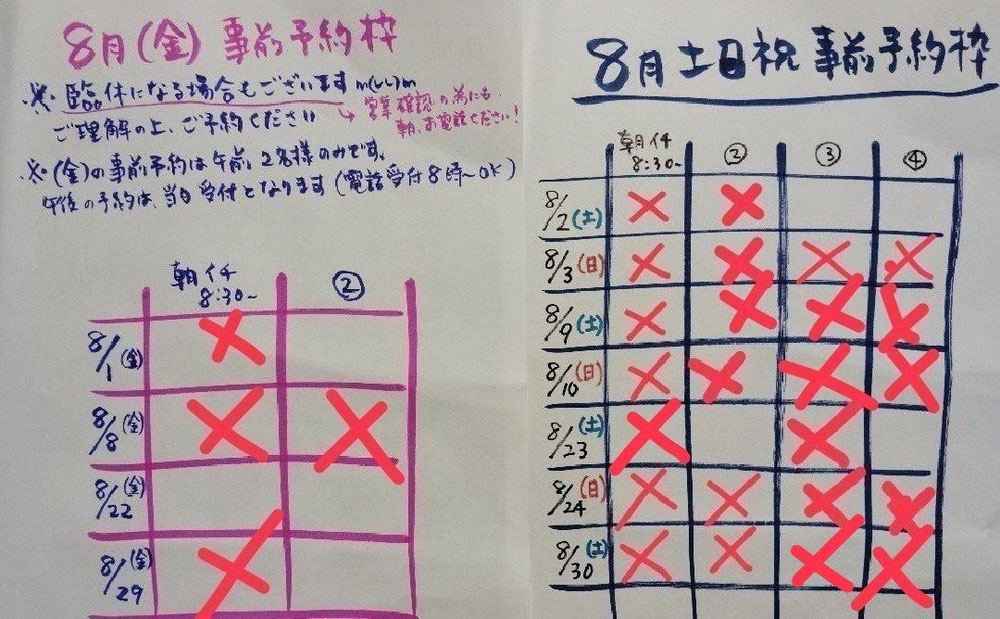 8月(金) 事前予約枠
※ 臨休になる場合もございます m(_ _)m
ご理解の上、ご予約ください
→ 営業確認の為にも
朝、お電話ください!
※ (金)の事前予約は午前、2名様のみです。
午後の予約は、当日受付となります (電話受付8時〜OK)
朝イチ ②
8:30〜
8/1(金) ×
8/8(金) × ×
8/22(金)
8/29(金) ×
8月土日祝 事前予約枠
朝イチ ② ③ ④
8:30〜
8/2(土) × ×
8/3(日) × × × ×
8/9(土) × × × ×
8/10(日) × × × ×
8/23(土) × ×
8/24(日) × × × ×
8/30(土) × × × ×